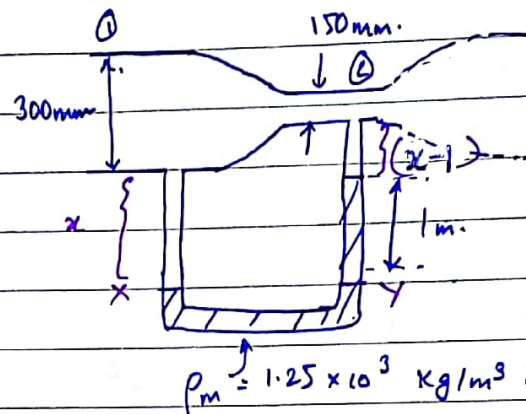 ① 150mm.
②
300mm
(x-1)
x
1m.
X Y
ρm = 1.25 × 10³ kg/m³